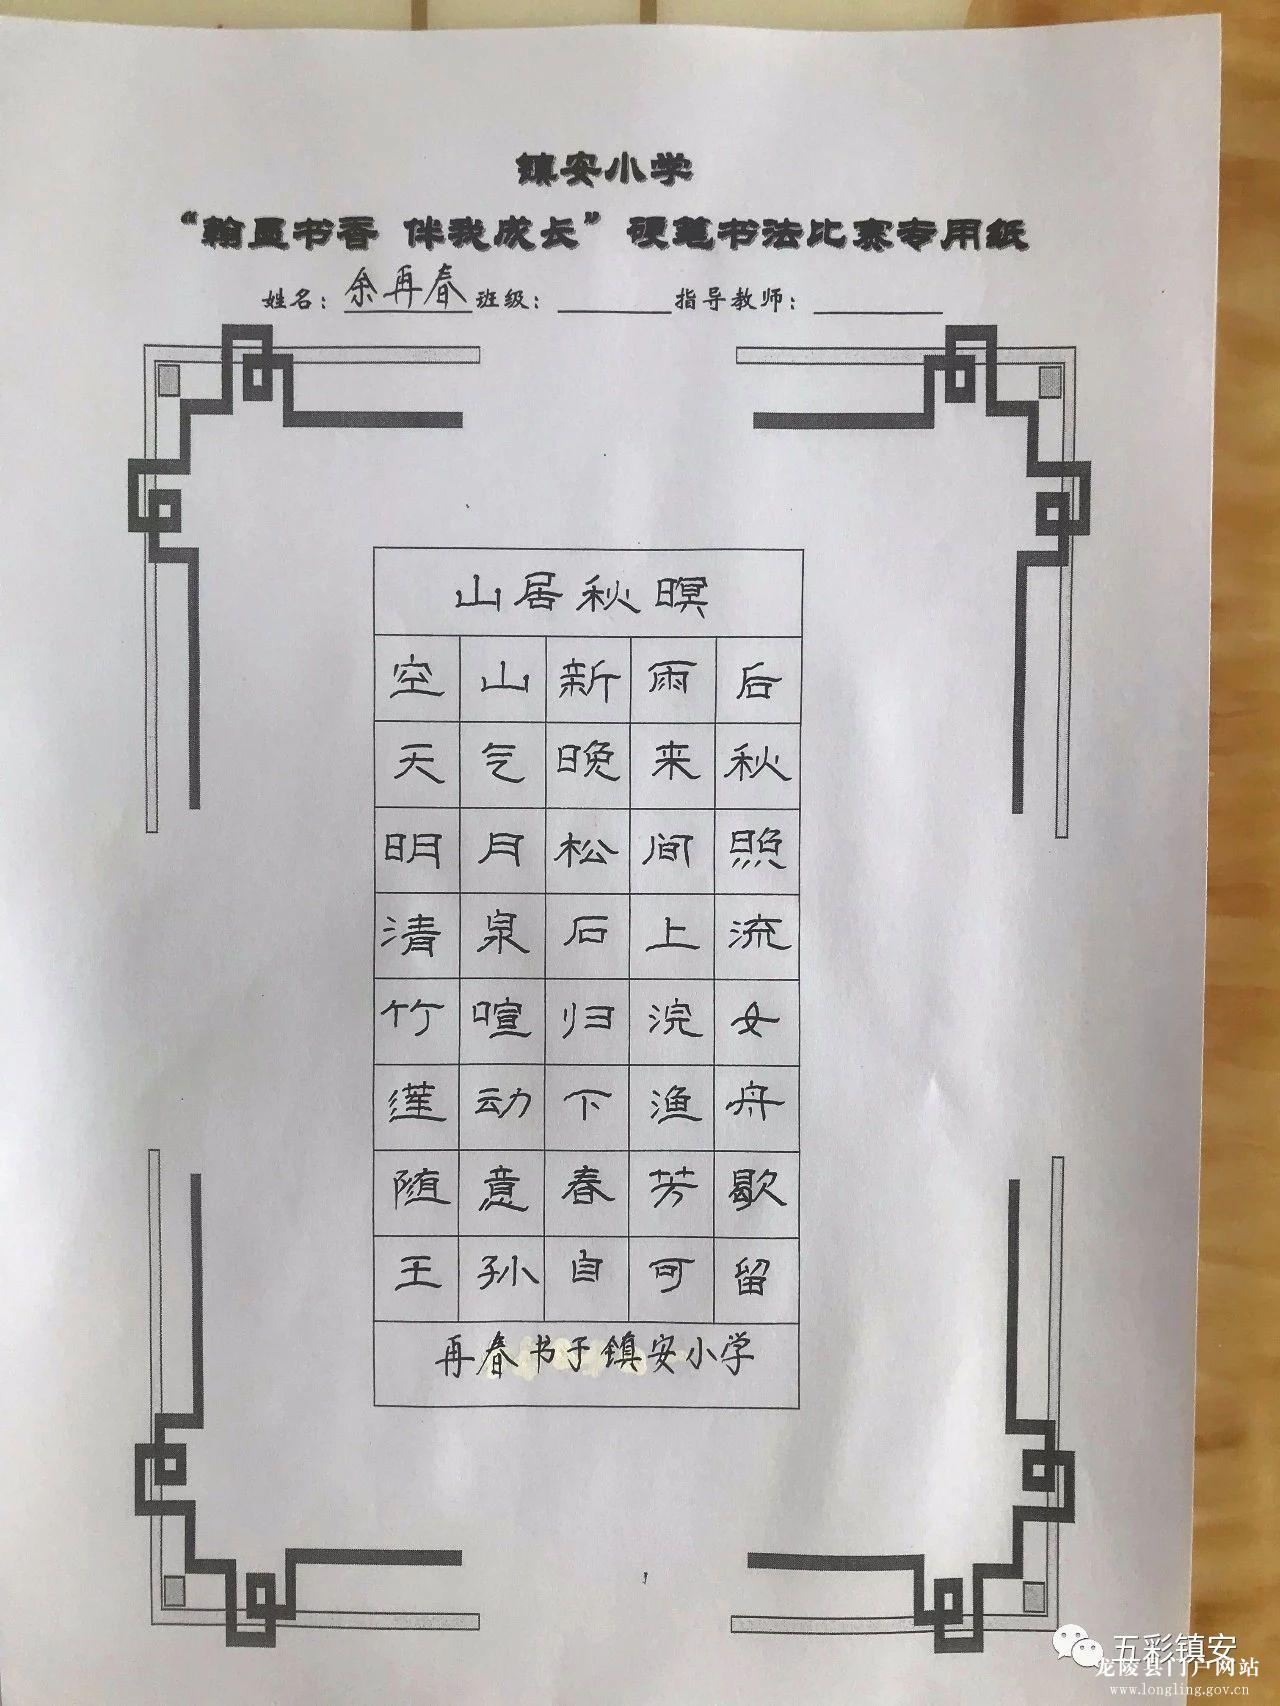 镇安小学
“翰墨书香 伴我成长”硬笔书法比赛专用纸
姓名：余再春 班级： 指导教师：
山居秋暝
空山新雨后
天气晚来秋
明月松间照
清泉石上流
竹喧归浣女
莲动下渔舟
随意春芳歇
王孙自可留
再春书于镇安小学
五彩镇安
龙陵县门户网站
www.longling.gov.cn